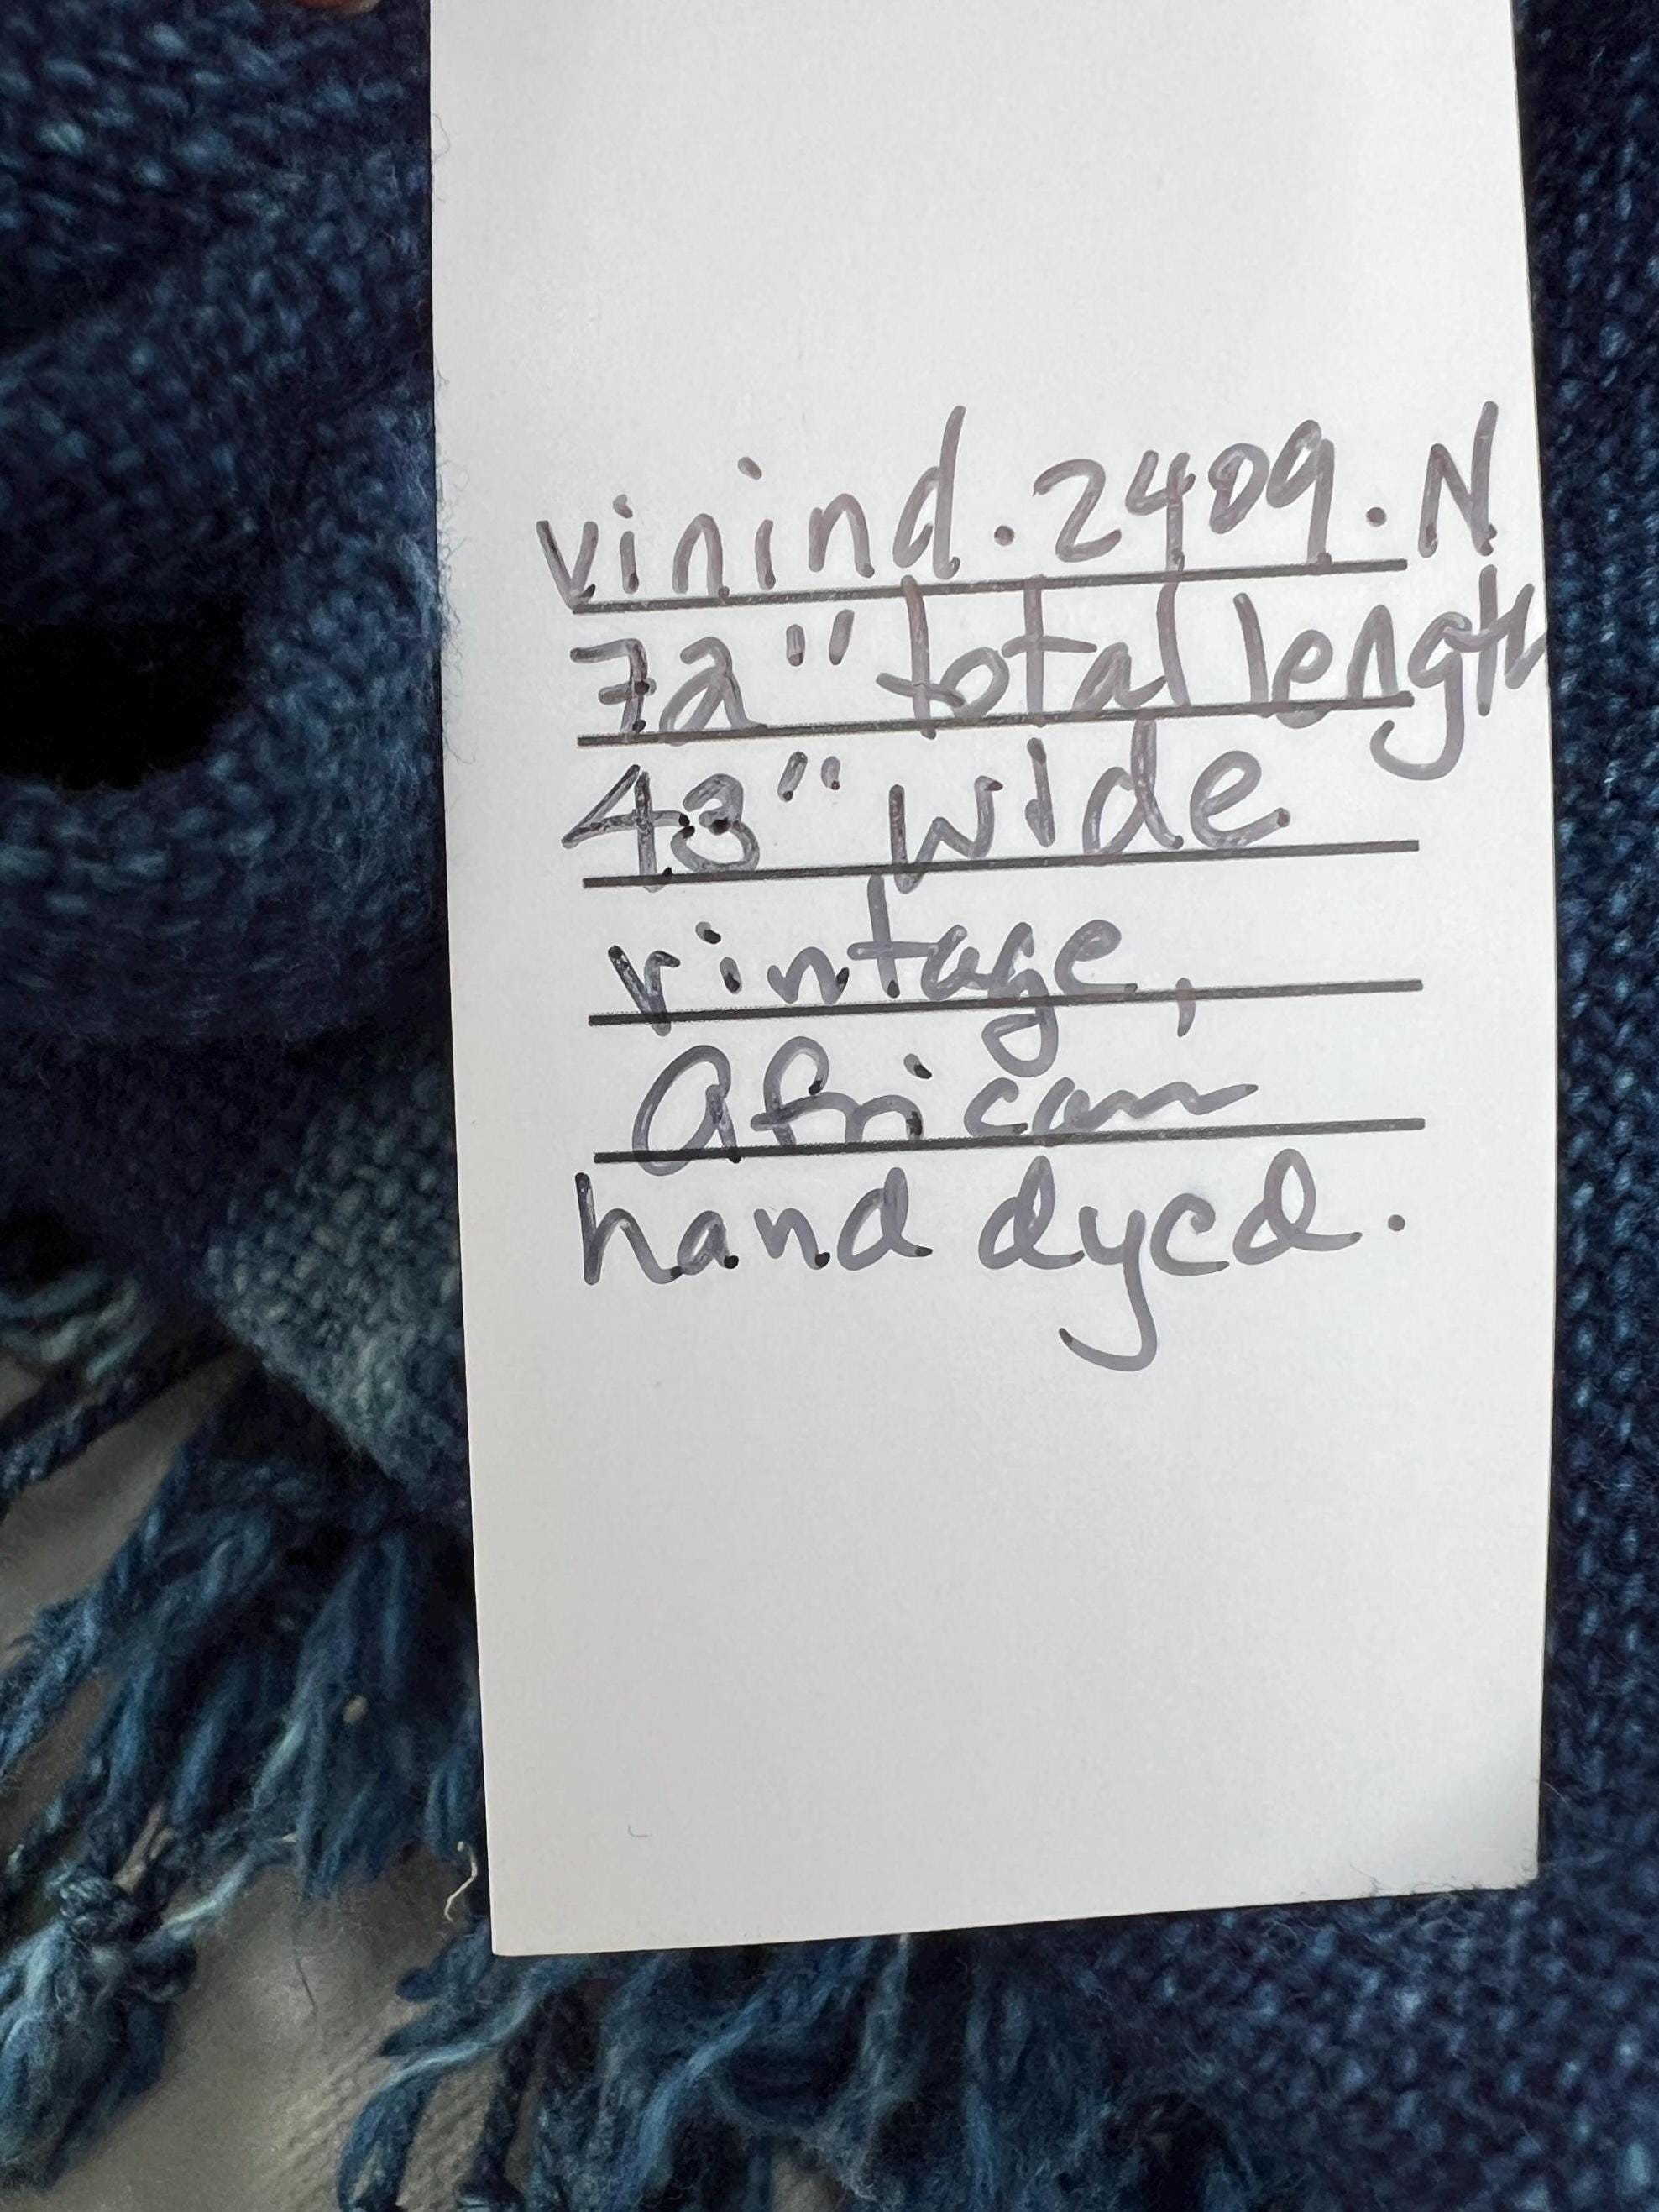 vinind.2409.N
72" total length
43" wide
vintage,
African
hand dyed.